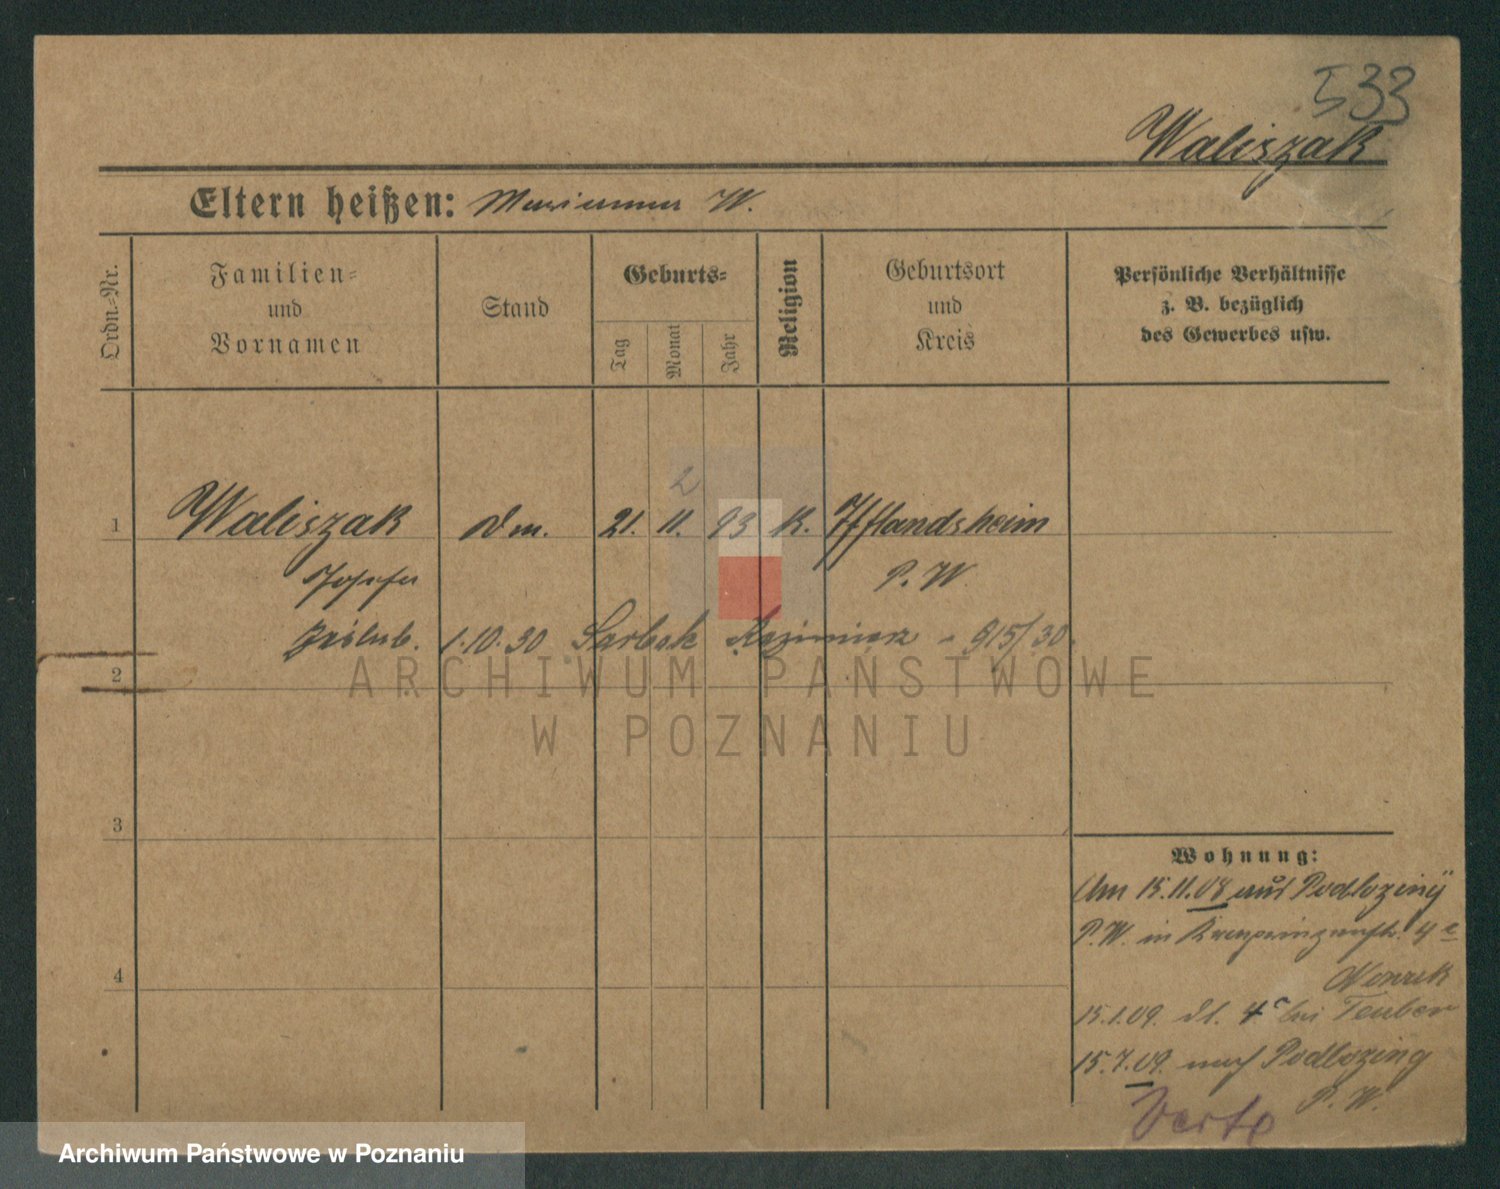 533
Waliszak
Eltern heißen: Marianna W.
Ordn.=Nr.
Familien=
und
Vornamen
Stand
Geburts=
Tag
Monat
Jahr
Religion
Geburtsort
und
Kreis
Persönliche Verhältnisse
z. B. bezüglich
des Gewerbes usw.
2
1 Waliszak Dm. 21. 11. 93 K. Ifflandsheim
Josefa P. W.
zaślub. 1.10.30 Sarbak Kazimierz - 915/30.
2
ARCHIWUM PAŃSTWOWE
W POZNANIU
3
Wohnung:
Am 15.11.08 aus Podloziny
P.W. in Kronprinzenstr. 4 c
4
Nowak
15.1.09. dt. 4 c bei Teuber
15.7.09. nach Podlozing
P. W.
Verte
Archiwum Państwowe w Poznaniu